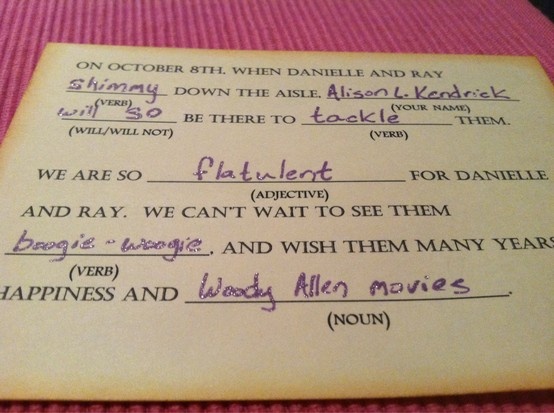 ON OCTOBER 8TH, WHEN DANIELLE AND RAY
shimmy DOWN THE AISLE, Alison L. Kendrick
(VERB) (YOUR NAME)
will so BE THERE TO tackle THEM.
(WILL/WILL NOT) (VERB)
WE ARE SO flatulent FOR DANIELLE
(ADJECTIVE)
AND RAY. WE CAN'T WAIT TO SEE THEM
boogie-woogie, AND WISH THEM MANY YEARS
(VERB)
HAPPINESS AND Woody Allen movies.
(NOUN)